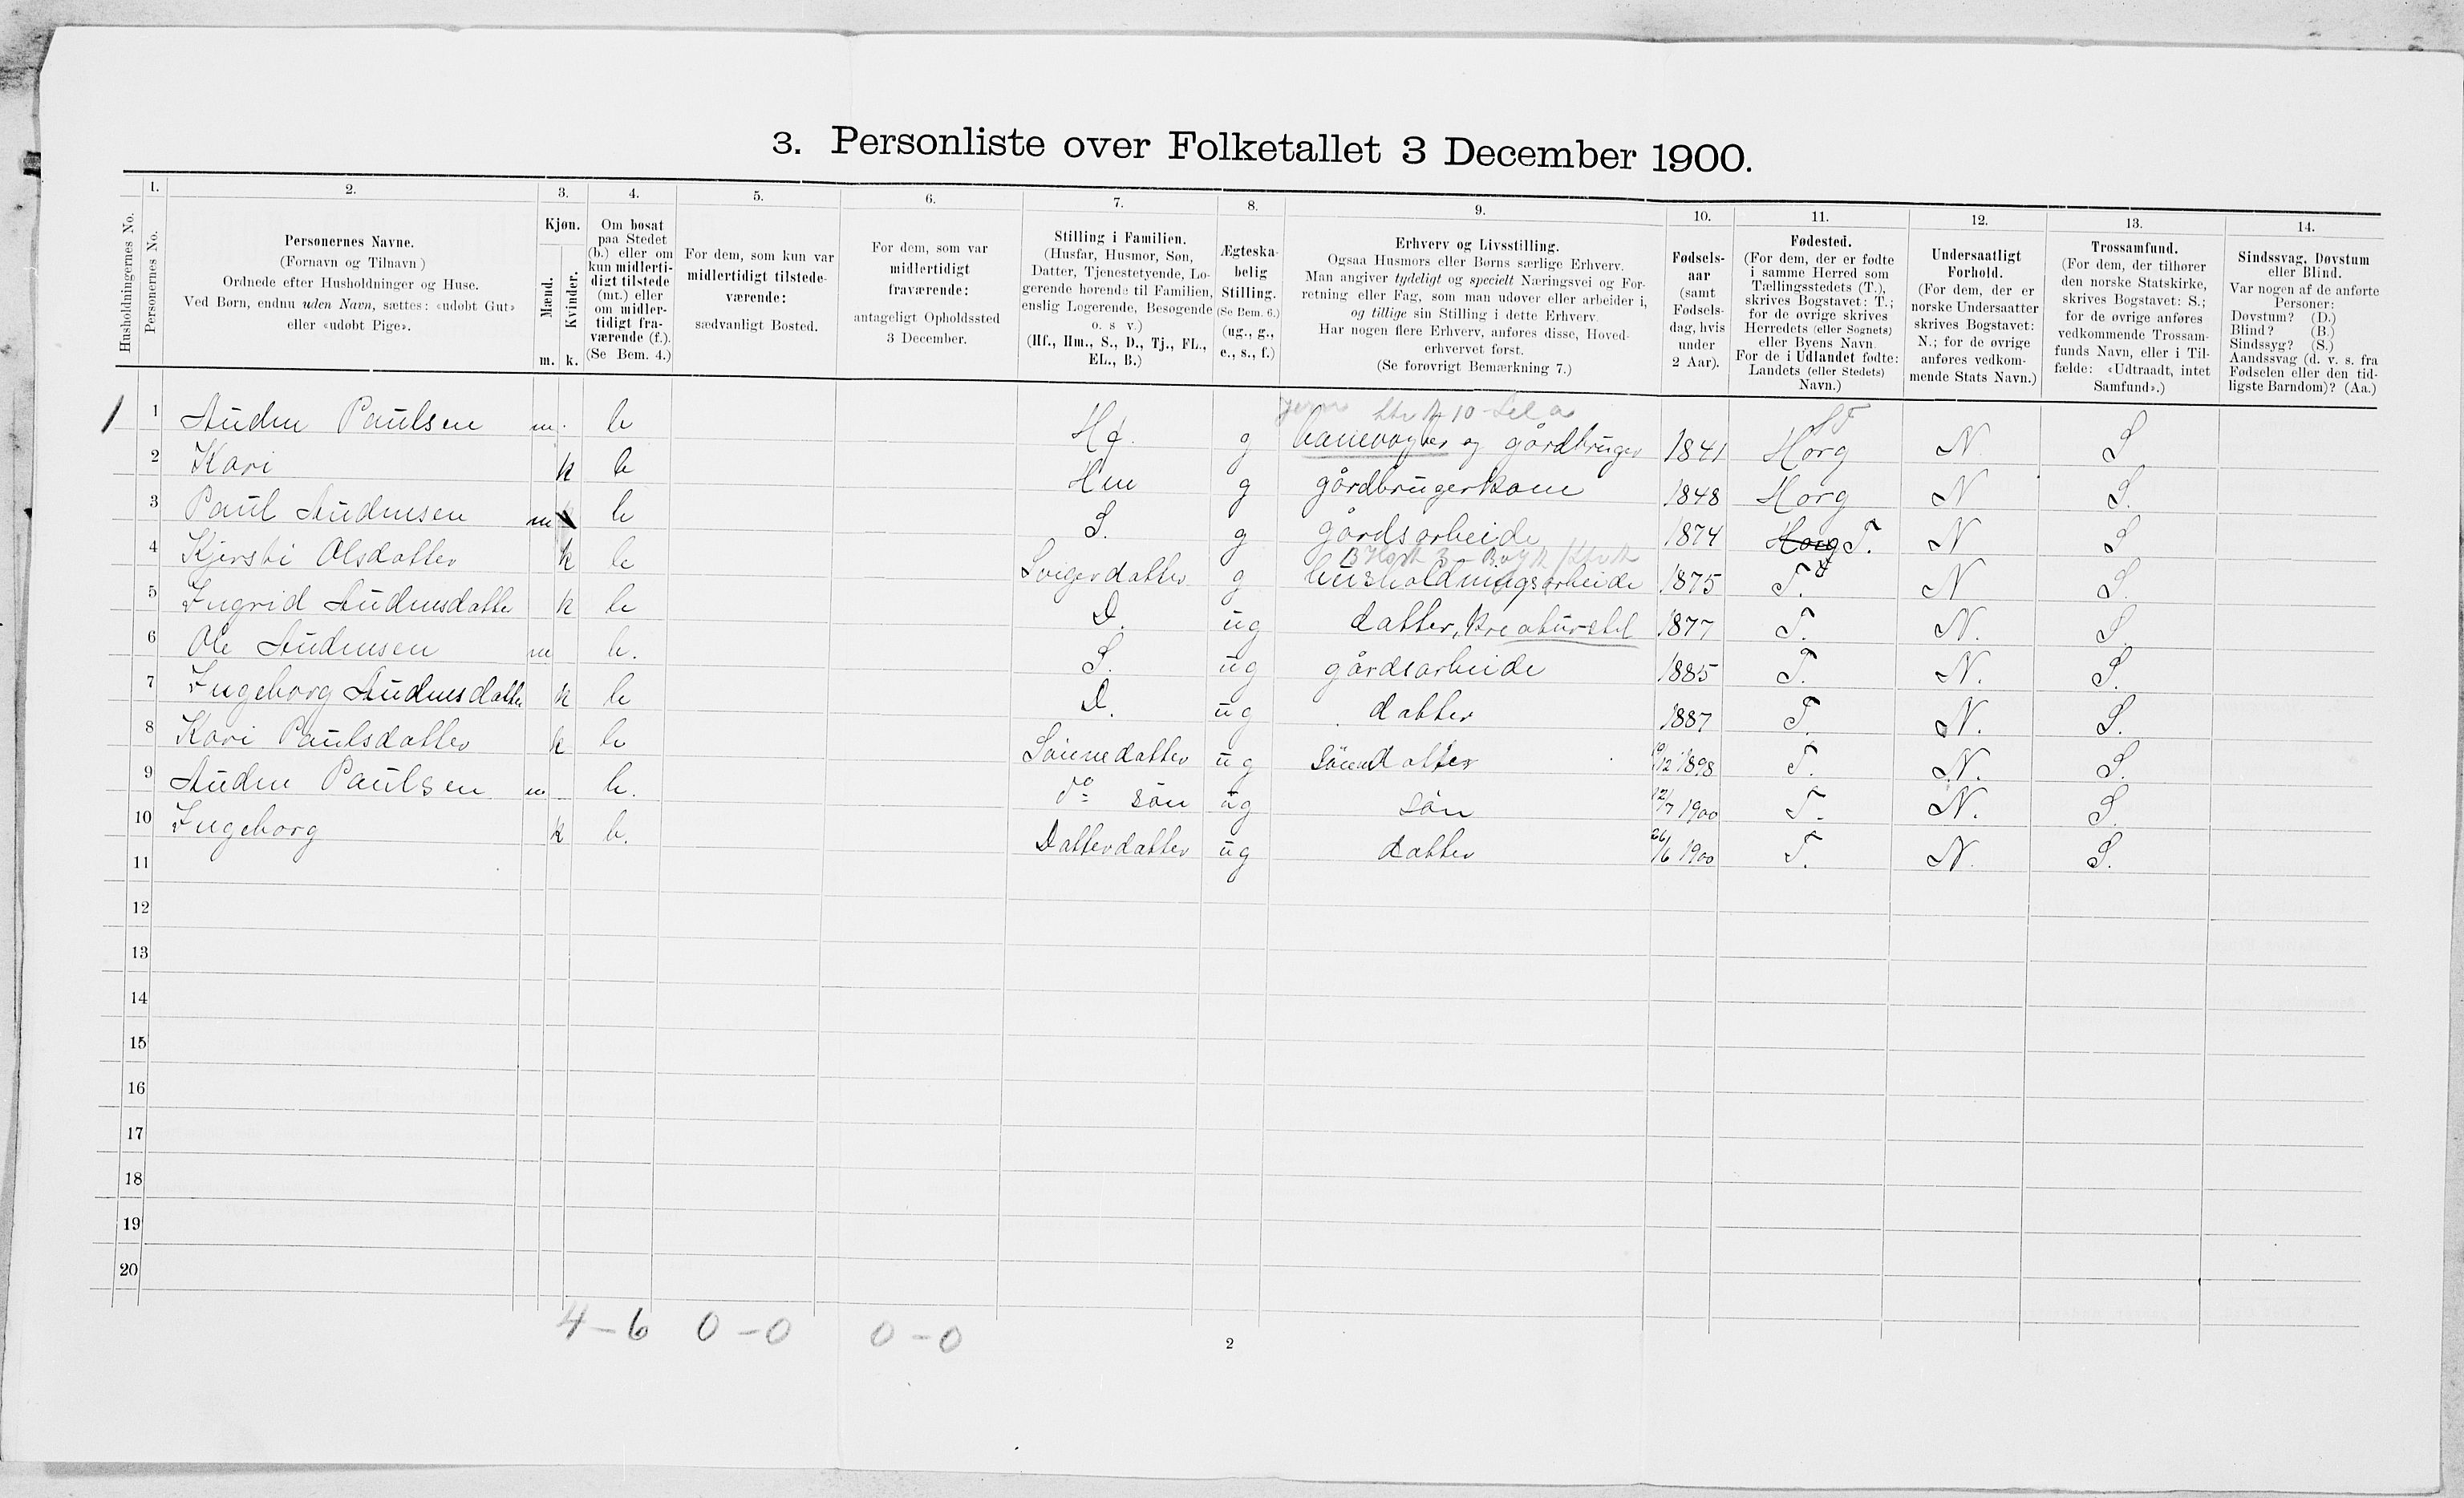 3. Personliste over Folketallet 3 December 1900.
Husholdningernes No.
1. Personernes No.
2. Personernes Navne.
(Fornavn og Tilnavn)
Ordnede efter Husholdninger og Huse.
Ved Børn, endnu uden Navn, sættes: «udøbt Gut»
eller «udøbt Pige».
3. Kjøn.
Mænd. m.
Kvinder. k.
4. Om bosat
paa Stedet
(b.) eller om
kun midlerti-
digt tilstede
(mt.) eller
om midler-
tidigt fra-
værende (f.).
(Se Bem. 4.)
5. For dem, som kun var
midlertidigt tilstede-
værende:
sædvanligt Bosted.
6. For dem, som var
midlertidigt
fraværende:
antageligt Opholdssted
3 December.
7. Stilling i Familien.
(Husfar, Husmor, Søn,
Datter, Tjenestetyende, Lo-
gerende hørende til Familien,
enslig Logerende, Besøgende
o. s. v.)
(Hf., Hm., S., D., Tj., FL.,
EL., B.)
8. Ægteska-
belig
Stilling.
(Se Bem. 6.)
(ug., g.,
e., s., f.)
9. Erhverv og Livsstilling.
Ogsaa Husmors eller Børns særlige Erhverv.
Man angiver tydeligt og specielt Næringsvei og For-
retning eller Fag, som man udøver eller arbeider i,
og tillige sin Stilling i dette Erhverv.
Har nogen flere Erhverv, anføres disse, Hoved-
erhvervet først.
(Se forøvrigt Bemærkning 7.)
10. Fødsels-
aar
(samt
Fødsels-
dag, hvis
under
2 Aar).
11. Fødested.
(For dem, der er fødte
i samme Herred som
Tællingsstedets (T.),
skrives Bogstavet: T.;
for de øvrige skrives
Herredets (eller Sognets)
eller Byens Navn.
For de i Udlandet fødte:
Landets (eller Stedets)
Navn.)
12. Undersaatligt
Forhold.
(For dem, der er
norske Undersaatter
skrives Bogstavet:
N.; for de øvrige
anføres vedkom-
mende Stats Navn.)
13. Trossamfund.
(For dem, der tilhører
den norske Statskirke,
skrives Bogstavet: S.;
for de øvrige anføres
vedkommende Trossam-
funds Navn, eller i Til-
fælde: «Udtraadt, intet
Samfund».)
14. Sindssvag, Døvstum
eller Blind.
Var nogen af de anførte
Personer:
Døvstum? (D.)
Blind? (B.)
Sindssyg? (S.)
Aandssvag (d. v. s. fra
Fødselen eller den tid-
ligste Barndom)? (Aa.)
1 1 Audun Paulsen m. b Hf. g banevogter og gårdbruger 1841 Horg N. S
2 Kari k b Hm g gårdbrugerkone 1848 Horg N S.
3 Paul Audunsen m b S. g gårdsarbeide 1874 Horg T. N S
4 Kjersti Olsdatter k b Svigerdatter g husholdningsarbeide 1875 T. N S.
5 Ingrid Audunsdatter k b D. ug datter, kreaturstel 1877 T. N. S.
6 Ole Audunsen m b. S. ug gårdsarbeide 1885 T. N. S.
7 Ingeborg Audunsdatter k b D. ug datter 1887 T. N. S.
8 Kari Paulsdatter k b Sønnedatter ug sønnedatter /12 1898 T. N. S.
9 Audun Paulsen m b. do søn ug søn 12/7 1900 T. N. S.
10 Ingeborg k b. Datterdatter ug datter 26/6 1900 T. N. S.
11
12
13
14
15
16
17
18
19
20
4 - 6 0 - 0 0 - 0
2